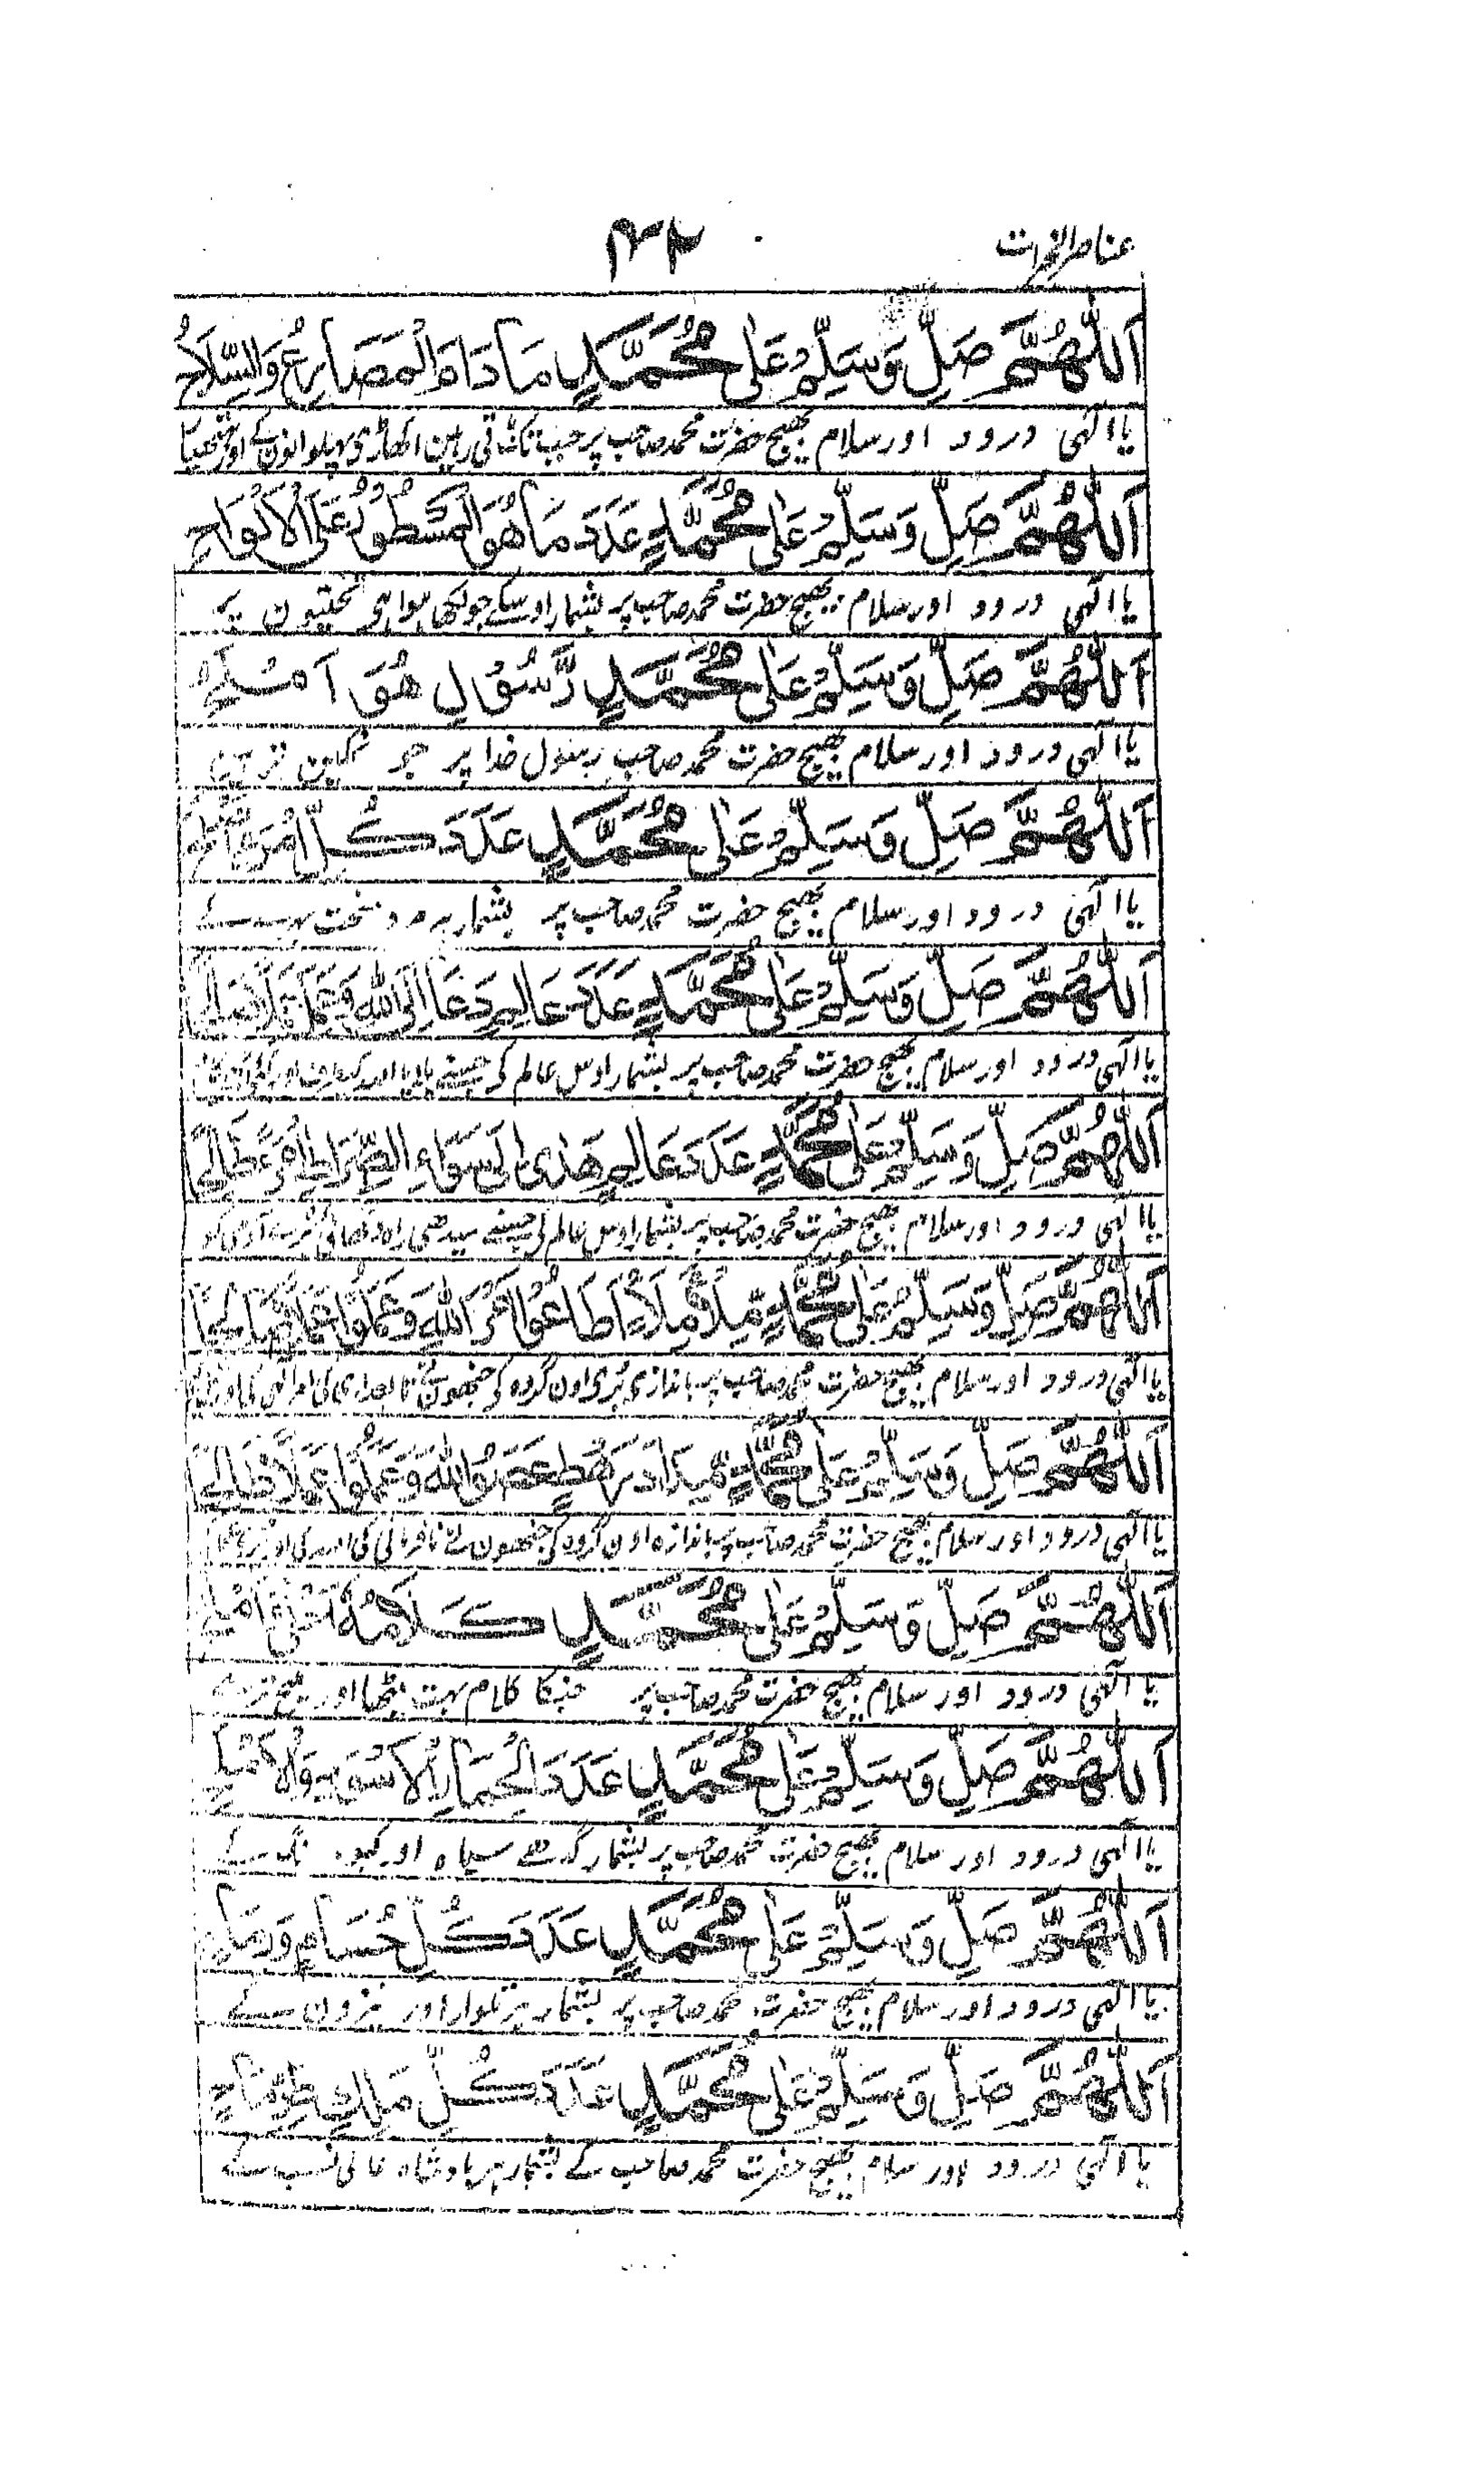 عناصر الخیرات
اَللّٰهُمَّ صَلِّ وَسَلِّمْ عَلٰى مُحَمَّدٍ مَا دَامَ الْمَصَارِعُ وَالسِّلَاحُ
یا الٰہی درود اور سلام بھیج حضرت محمد صاحب پر جب تک ٹوٹتی رہین اکھاڑی پہلوانون کے اور
اَللّٰهُمَّ صَلِّ وَسَلِّمْ عَلٰى مُحَمَّدٍ عَدَدَ مَا هُوَ الْمَسْطُوْرُ عَلَى الْاَلْوَاحِ
یا الٰہی درود اور سلام بھیج حضرت محمد صاحب پر بشمار اوسکے جو لکھا ہوا ہی تختیون پر
اَللّٰهُمَّ صَلِّ وَسَلِّمْ عَلٰى مُحَمَّدٍ رَّسُوْلٍ هُوَ اَمْلَحُ
یا الٰہی درود اور سلام بھیج حضرت محمد صاحب رسول خدا پر جو نمکین تر ہین
اَللّٰهُمَّ صَلِّ وَسَلِّمْ عَلٰى مُحَمَّدٍ عَدَدَ كُلِّ
یا الٰہی درود اور سلام بھیج حضرت محمد صاحب پر بشمار ہر مرد سخت کے
اَللّٰهُمَّ صَلِّ وَسَلِّمْ عَلٰى مُحَمَّدٍ عَدَدَ عَالِمٍ دَعَا اِلَى اللّٰهِ وَعَمِلَ عَمَلًا صَالِحًا
یا الٰہی درود اور سلام بھیج حضرت محمد صاحب پر بشمار اوس عالم کے جسنے بلایا اللہ کیطرف اور
اَللّٰهُمَّ صَلِّ وَسَلِّمْ عَلٰى مُحَمَّدٍ عَدَدَ عَالِمٍ هَدٰى اِلٰى سَوَاءِ الصِّرَاطِ
یا الٰہی درود اور سلام بھیج حضرت محمد صاحب پر بشمار اوس عالم کی جسنے سیدھی راہ دکھائی آدمی کو
اَللّٰهُمَّ صَلِّ وَسَلِّمْ عَلٰى مُحَمَّدٍ مَلَاءٍ اَطَاعُوْا اَمْرَ اللّٰهِ وَعَمِلُوْا عَمَلًا صَالِحًا
یا الٰہی درود اور سلام بھیج حضرت محمد صاحب پر اون گروہ کی جنھون نے تابعداری کی امر الٰہی کی اور
اَللّٰهُمَّ صَلِّ وَسَلِّمْ عَلٰى مُحَمَّدٍ مِّدَادَ رَهْطٍ عَصَوُا اللّٰهَ وَعَمِلُوْا عَمَلًا
یا الٰہی درود اور سلام بھیج حضرت محمد صاحب پر باندازہ اون گروہ کی جنھون نے نافرمانی کی اللہ کی اور
اَللّٰهُمَّ صَلِّ وَسَلِّمْ عَلٰى مُحَمَّدٍ كَلَامُهٗ
یا الٰہی درود اور سلام بھیج حضرت محمد صاحب پر جنکا کلام بہت میٹھا اور
اَللّٰهُمَّ صَلِّ وَسَلِّمْ عَلٰى مُحَمَّدٍ عَدَدَ الْحِمَارِ الْاَسْوَدِ وَ
یا الٰہی درود اور سلام بھیج حضرت محمد صاحب پر بشمار گدھے سیاہ اور
اَللّٰهُمَّ صَلِّ وَسَلِّمْ عَلٰى مُحَمَّدٍ عَدَدَ كُلِّ حُسَامٍ وَرِمَاحٍ
یا الٰہی درود اور سلام بھیج حضرت محمد صاحب پر بشمار ہر تلوار اور نیزون کے
اَللّٰهُمَّ صَلِّ وَسَلِّمْ عَلٰى مُحَمَّدٍ عَدَدَ كُلِّ مَلِكٍ
یا الٰہی درود اور سلام بھیج حضرت محمد صاحب کے بشمار ہر بادشاہ عالی نسب کے